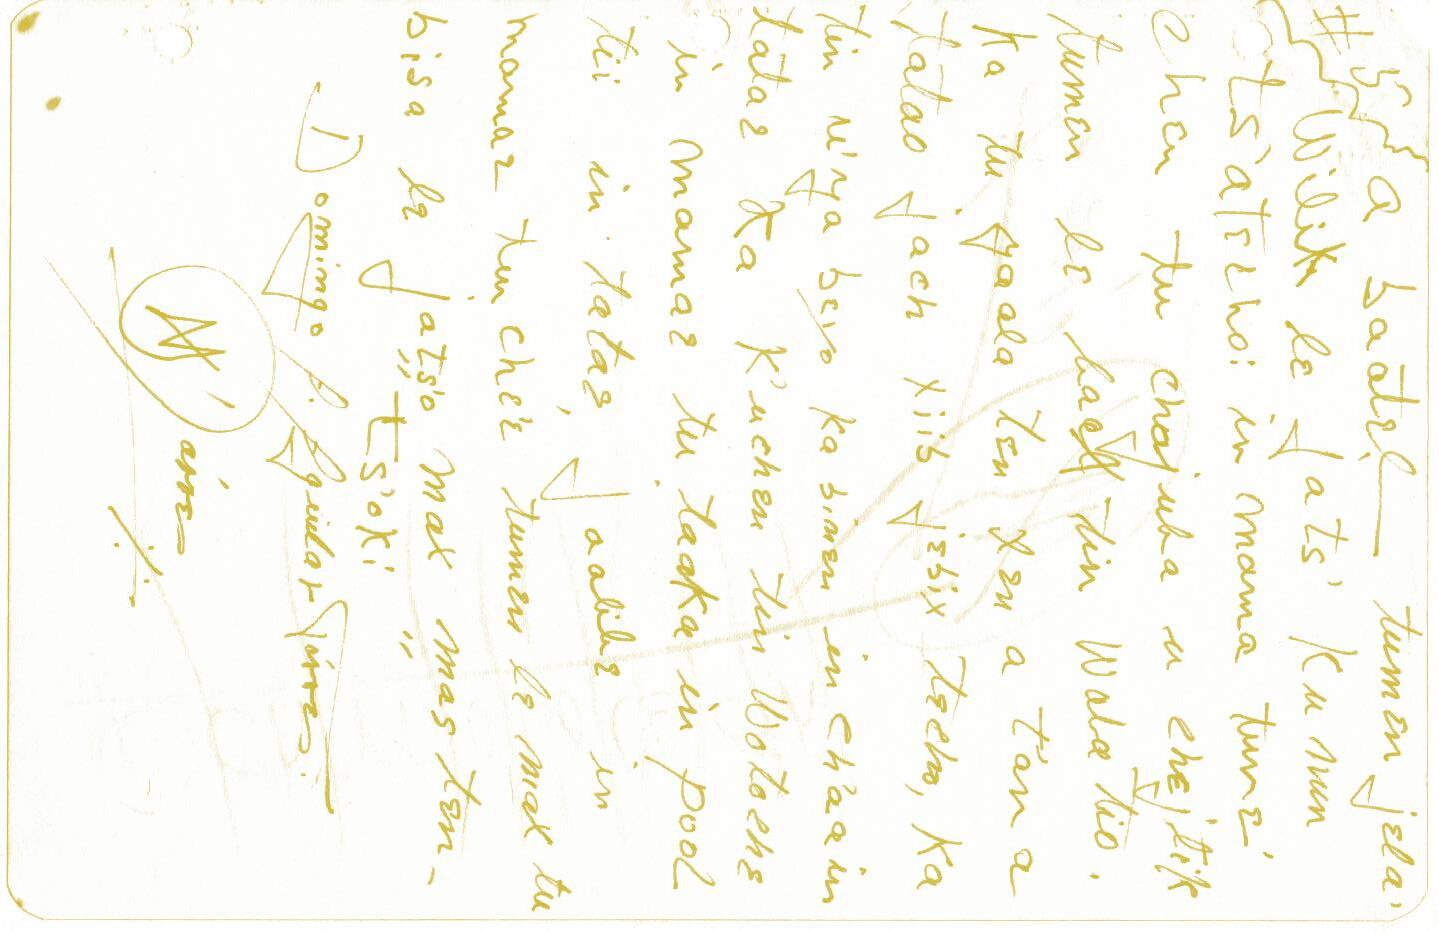 #5 a baatel tumen jela'
Wilik le jats' ku nun
tsatsho: in mama tune'
Chen tu chajuba u chejtik
tumen le hach tin Wala tio.
Ka tu yaala ten xen a t'an a
tatao yach xiib jebix techo, ka
tin u'ya beiro ka binen in ch'aain
tataz ka k'uchen tin Wotoche
in mamaz tu taaka in pool
tii in tataz, yaalike in
mamaz tun che'e tumen le max tu
bisa le jats'o max mas ten-
"ts'oki"
Domingo P. Aguilar